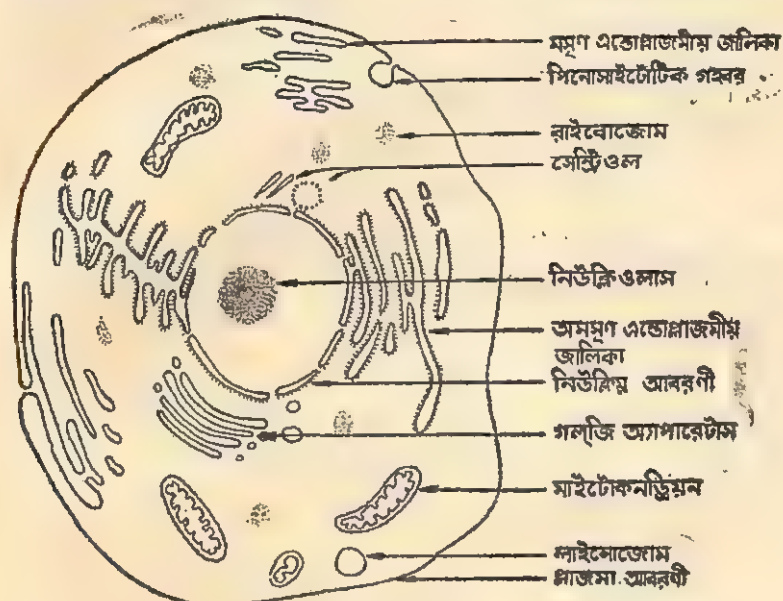 মসৃণ এন্ডোপ্লাজমীয় জালিকা
পিনোসাইটোটিক গহ্বর
রাইবোজোম
সেন্ট্রিওল
নিউক্লিওলাস
অমসৃণ এন্ডোপ্লাজমীয়
জালিকা
নিউক্লিয় আবরণী
গল্‌জি অ্যাপারেটাস
মাইটোকনড্রিয়ন
লাইসোজোম
প্লাজমা আবরণী